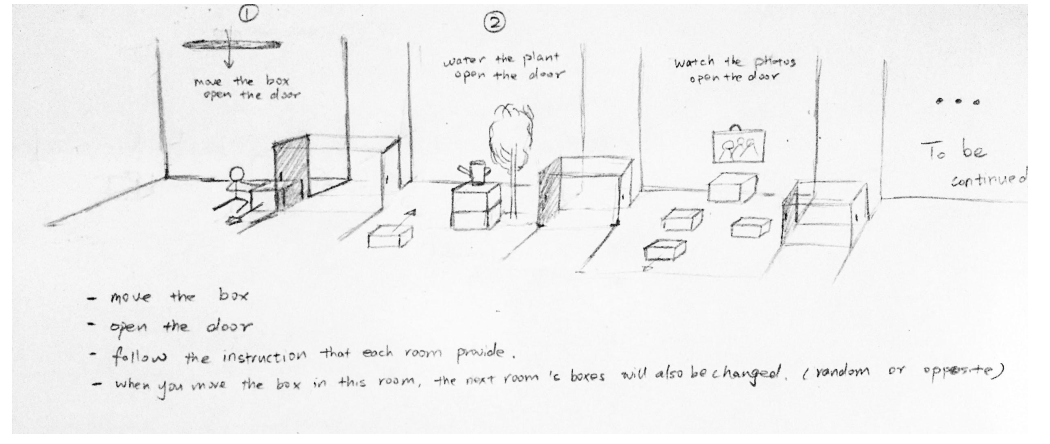 ①
move the box
open the door
②
water the plant
open the door
watch the photos
open the door
...
To be
continued
- move the box
- open the door
- follow the instruction that each room provide.
- when you move the box in this room, the next room's boxes will also be changed. (random or opposite)